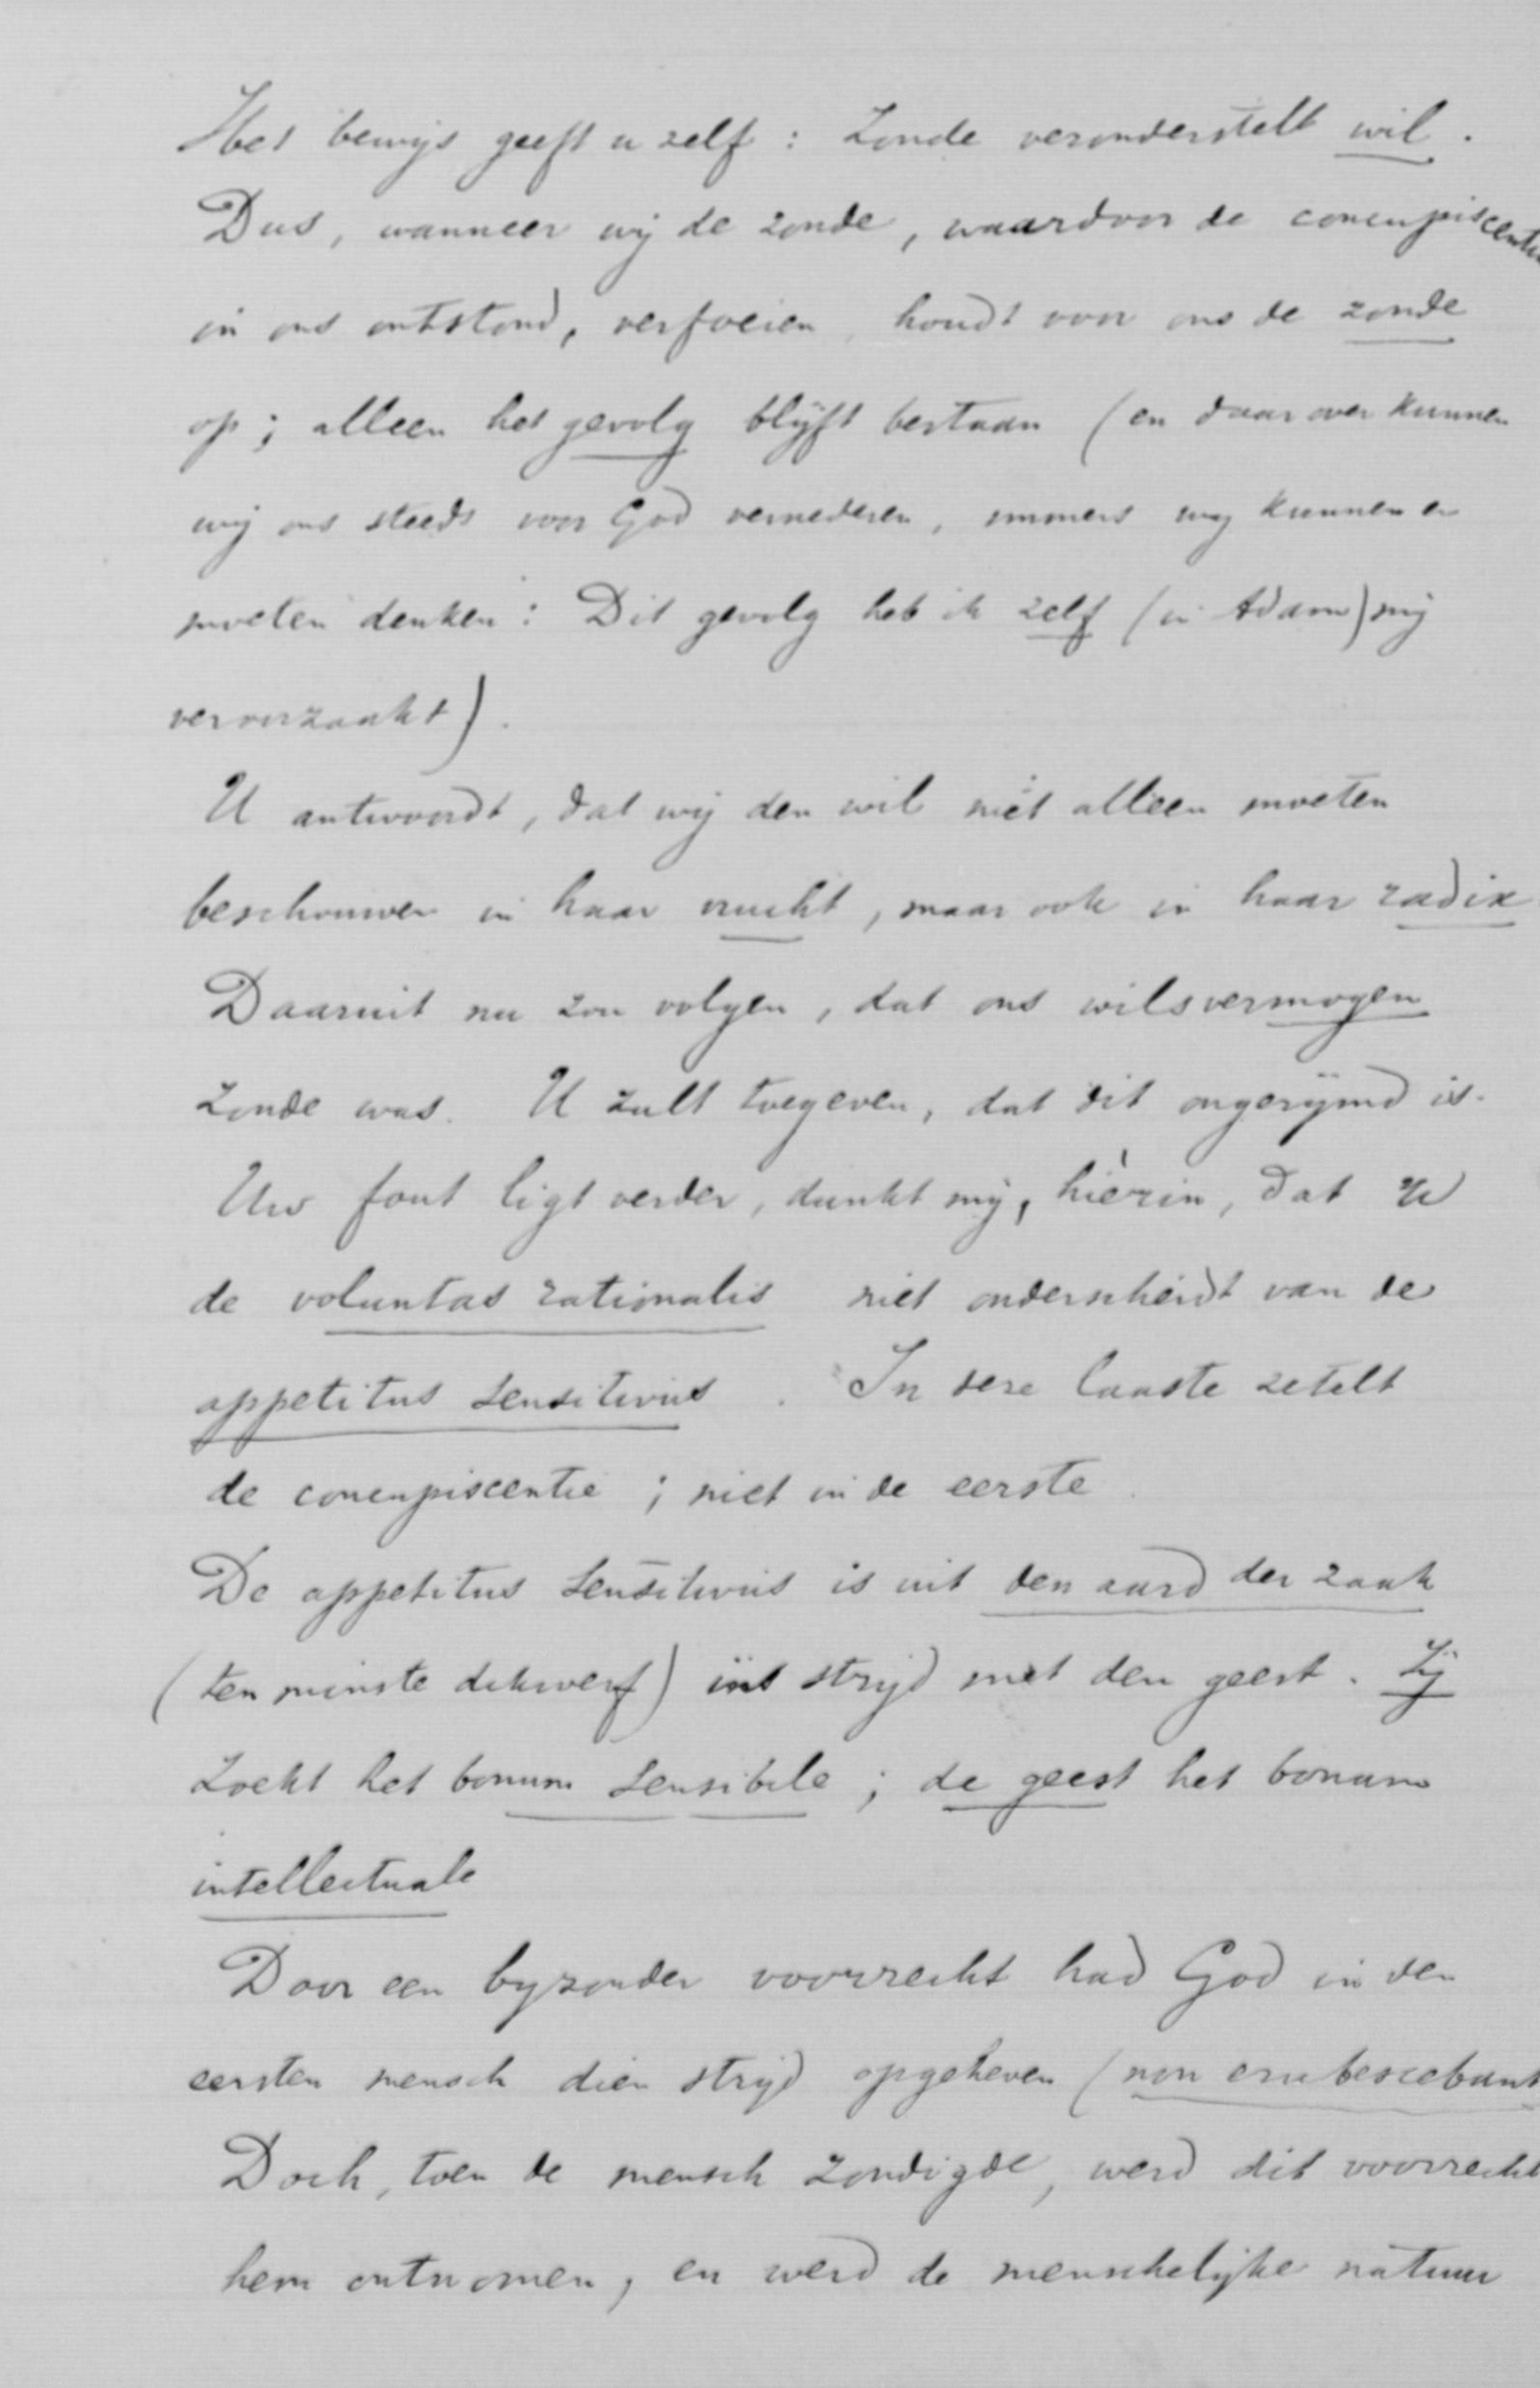 Het bewijs geeft u zelf : Zonde veronderstelt wil .
Dus, wanneer wij de zonde, waardoor de concupiscentie
in ons ontstond, verfoeien, houdt voor ons de zonde
op ; alleen het gevolg blijft bestaan (en daarover kunnen
wij ons steeds voor God vernederen, immers wij kunnen en
moeten denken : Dit gevolg heb ik zelf (in Adam) mij
veroorzaakt) .
U antwoordt, dat wij den wil niet alleen moeten
beschouwen in haar vrucht, maar ook in haar radix
Daaruit nu zou volgen, dat ons wilsvermogen
zonde was. U zult toegeven, dat dit ongerijmd is.
Uw fout ligt verder, dunkt mij, hierin, dat U
de voluntas rationalis niet onderscheidt van de
appetitus sensitivus . In deze laatste zetelt
de concupiscentie ; niet in de eerste .
De appetitus sensitivus is uit den aard der zaak
(ten minste dikwerf) in strijd met den geest . Zij
zoekt het bonum sensibile ; de geest het bonum
intellectuale
Door een byzonder voorrecht had God in den
eersten mensch dien strijd opgeheven (non erubescebant
Doch, toen de mensch zondigde, werd dit voorrecht
hem ontnomen, en werd de menschelijke natuur